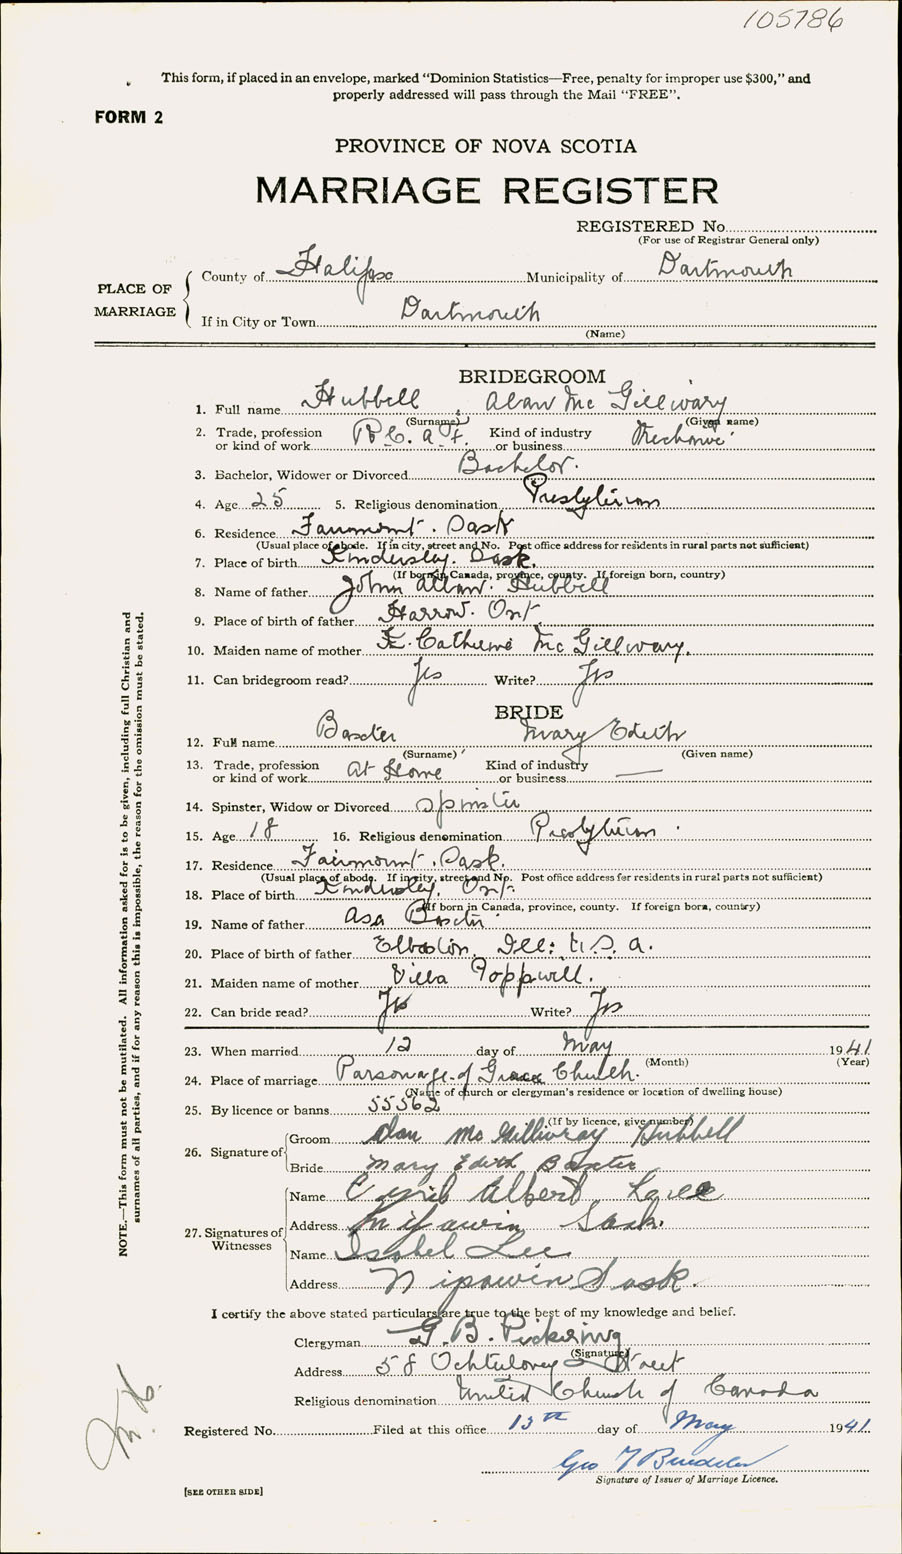 105786
This form, if placed in an envelope, marked “Dominion Statistics—Free, penalty for improper use $300,” and
properly addressed will pass through the Mail “FREE”.
FORM 2
PROVINCE OF NOVA SCOTIA
MARRIAGE REGISTER
REGISTERED No.
(For use of Registrar General only)
PLACE OF MARRIAGE
County of Halifax Municipality of Dartmouth
If in City or Town Dartmouth
(Name)
BRIDEGROOM
1. Full name Hubbell, Alan Mc Gillivary
(Surname) (Given name)
2. Trade, profession or kind of work R.C.A.F. Kind of industry or business Mechanic
3. Bachelor, Widower or Divorced Bachelor.
4. Age 25 5. Religious denomination Presbyterian
6. Residence Fairmont. Sask
(Usual place of abode. If in city, street and No. Post office address for residents in rural parts not sufficient)
7. Place of birth Kindersley. Sask.
(If born in Canada, province, county. If foreign born, country)
8. Name of father John Allan Hubbell
9. Place of birth of father Harrow. Ont
10. Maiden name of mother K. Catherine Mc Gillivary.
11. Can bridegroom read? Yes Write? Yes
BRIDE
12. Full name Baxter Mary Edith
(Surname) (Given name)
13. Trade, profession or kind of work At Home Kind of industry or business —
14. Spinster, Widow or Divorced Spinster
15. Age 18 16. Religious denomination Presbyterian
17. Residence Fairmount, Sask.
(Usual place of abode. If in city, street and No. Post office address for residents in rural parts not sufficient)
18. Place of birth Kindersley, Ont.
(If born in Canada, province, county. If foreign born, country)
19. Name of father Asa Baxter
20. Place of birth of father Ill: U.S.A.
21. Maiden name of mother Villa Poppwill.
22. Can bride read? Yes Write? Yes
23. When married 12 day of May 1941
(Month) (Year)
24. Place of marriage Parsonage of Grace Church.
(Name of church or clergyman's residence or location of dwelling house)
25. By licence or banns 55562
(If by licence, give number)
26. Signature of
Groom Alan McGillivray Hubbell
Bride Mary Edith Baxter
27. Signatures of Witnesses
Name Cyril Albert
Address Nipawin Sask.
Name Isobel Lee
Address Nipawin Sask.
I certify the above stated particulars are true to the best of my knowledge and belief.
Clergyman G. B. Pickering
(Signature)
Address 58 Ochterloney Street
Religious denomination United Church of Canada
Registered No. Filed at this office 13th day of May 1941
Geo
Signature of Issuer of Marriage Licence.
[SEE OTHER SIDE]
NOTE.—This form must not be mutilated. All information asked for is to be given, including full Christian and
surnames of all parties, and if for any reason this is impossible, the reason for the omission must be stated.